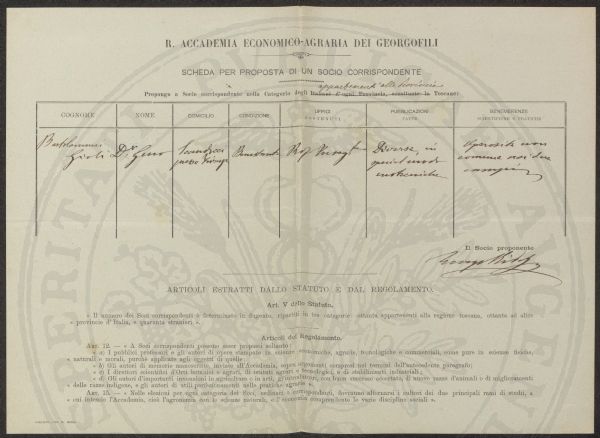 R. ACCADEMIA ECONOMICO-AGRARIA DEI GEORGOFILI
SCHEDA PER PROPOSTA DI UN SOCIO CORRISPONDENTE
appartenenti alle provincie
Propongo a Socio corrispondente nella Categoria degli Italiani d'ogni Provincia, eccettuate la Toscana:
COGNOME NOME DOMICILIO CONDIZIONE UFFICI SOSTENUTI PUBBLICAZIONI FATTE BENEMERENZE SCIENTIFICHE E PRATICHE
Bartolommei Dr. Gino Scandicci Possidente Diverse, in
Gioli presso Firenze special modo
enotecniche
Il Socio proponente
ARTICOLI ESTRATTI DALLO STATUTO E DAL REGOLAMENTO.
Art. V dello Statuto.
« Il numero dei Soci corrispondenti è determinato in dugento, ripartiti in tre categorie: ottanta appartenenti alla regione toscana, ottanta ad altre
« provincie d'Italia, e quaranta stranieri. ».
Articoli del Regolamento.
ART. 12. — « A Soci corrispondenti possono esser proposti soltanto:
« a) I pubblici professori e gli autori di opere stampate in scienze economiche, agrarie, tecnologiche e commerciali, come pure in scienze fisiche,
« naturali e morali, purchè applicate agli oggetti di quelle;
« b) Gli autori di memorie manoscritte, inviate all'Accademia, sopra argomenti compresi nei termini dell'antecedente paragrafo;
« c) I direttori scientifici d'Orti botanici e agrari, di istituti agrari e tecnologici, e di stabilimenti industriali;
« d) Gli autori d'importanti innovazioni in agricoltura o in arti, gl'introduttori, con buon successo accertato, di nuove razze d'animali o di miglioramenti
« delle razze indigene, e gli autori di utili perfezionamenti nelle pratiche agrarie ».
ART. 15. — « Nelle elezioni per ogni categoria dei Soci, ordinari e corrispondenti, dovranno alternarsi i cultori dei due principali rami di studi, a
« cui intende l'Accademia, cioè l'agronomia con le scienze naturali, e l'economia comprendente le varie discipline sociali ».